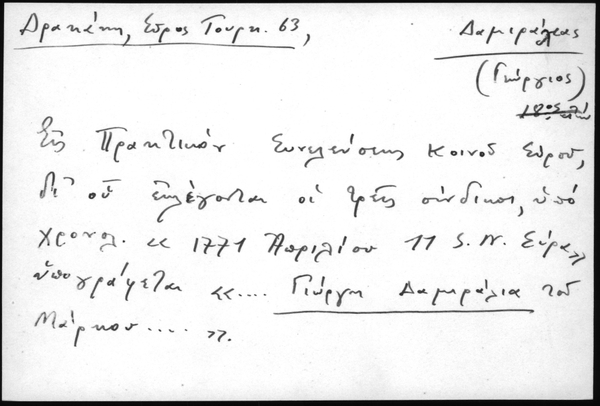 Δρακάκη, Σῦρος Τουρκ. 63,
Δαμιράλεας
(Γεώργιος)
18ος αἰών
Εἰς Πρακτικὸν Συνελεύσεως Κοινοῦ Σύρου,
δι' οὗ ἐκλέγονται οἱ τρεῖς σύνδικοι, ὑπό
χρονολ. « 1771 Ἀπριλίου 11 S.N. Σύρα»
ὑπογράφεται «.... Γιώργη Δαμιράλια τοῦ
Μάρκου .... ».